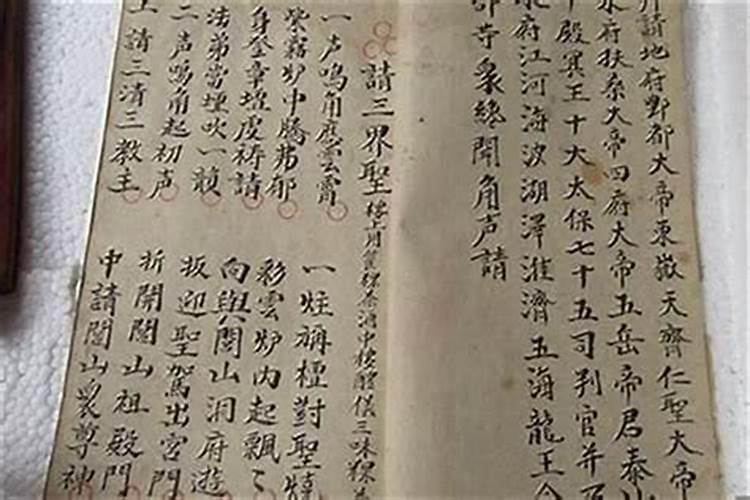 拜請地府酆都大帝東嶽天齊仁聖大帝
水府扶桑大帝四府大帝五岳帝君泰山
十殿冥王十大太保七十五司判官并及
水府江河海波湖澤淮濟五海龍王
部寺衆絲聞角声請
請三界聖
一声鳴角應雲霄
紫霧炉中騰弗郁
身登章壇虔禱請
法弟當壇吹一韻
二声鳴角起初声
上請三清三教主
一炷稱檀對聖
彩雲炉内起飄〻
向與閭山洞府遊
扳迎聖駕出宮門
折開閭山祖殿門
中請閭山衆尊神